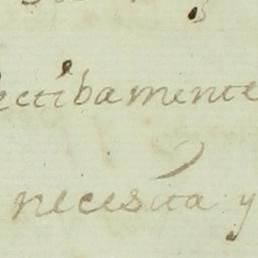 ectibamente
necesita y